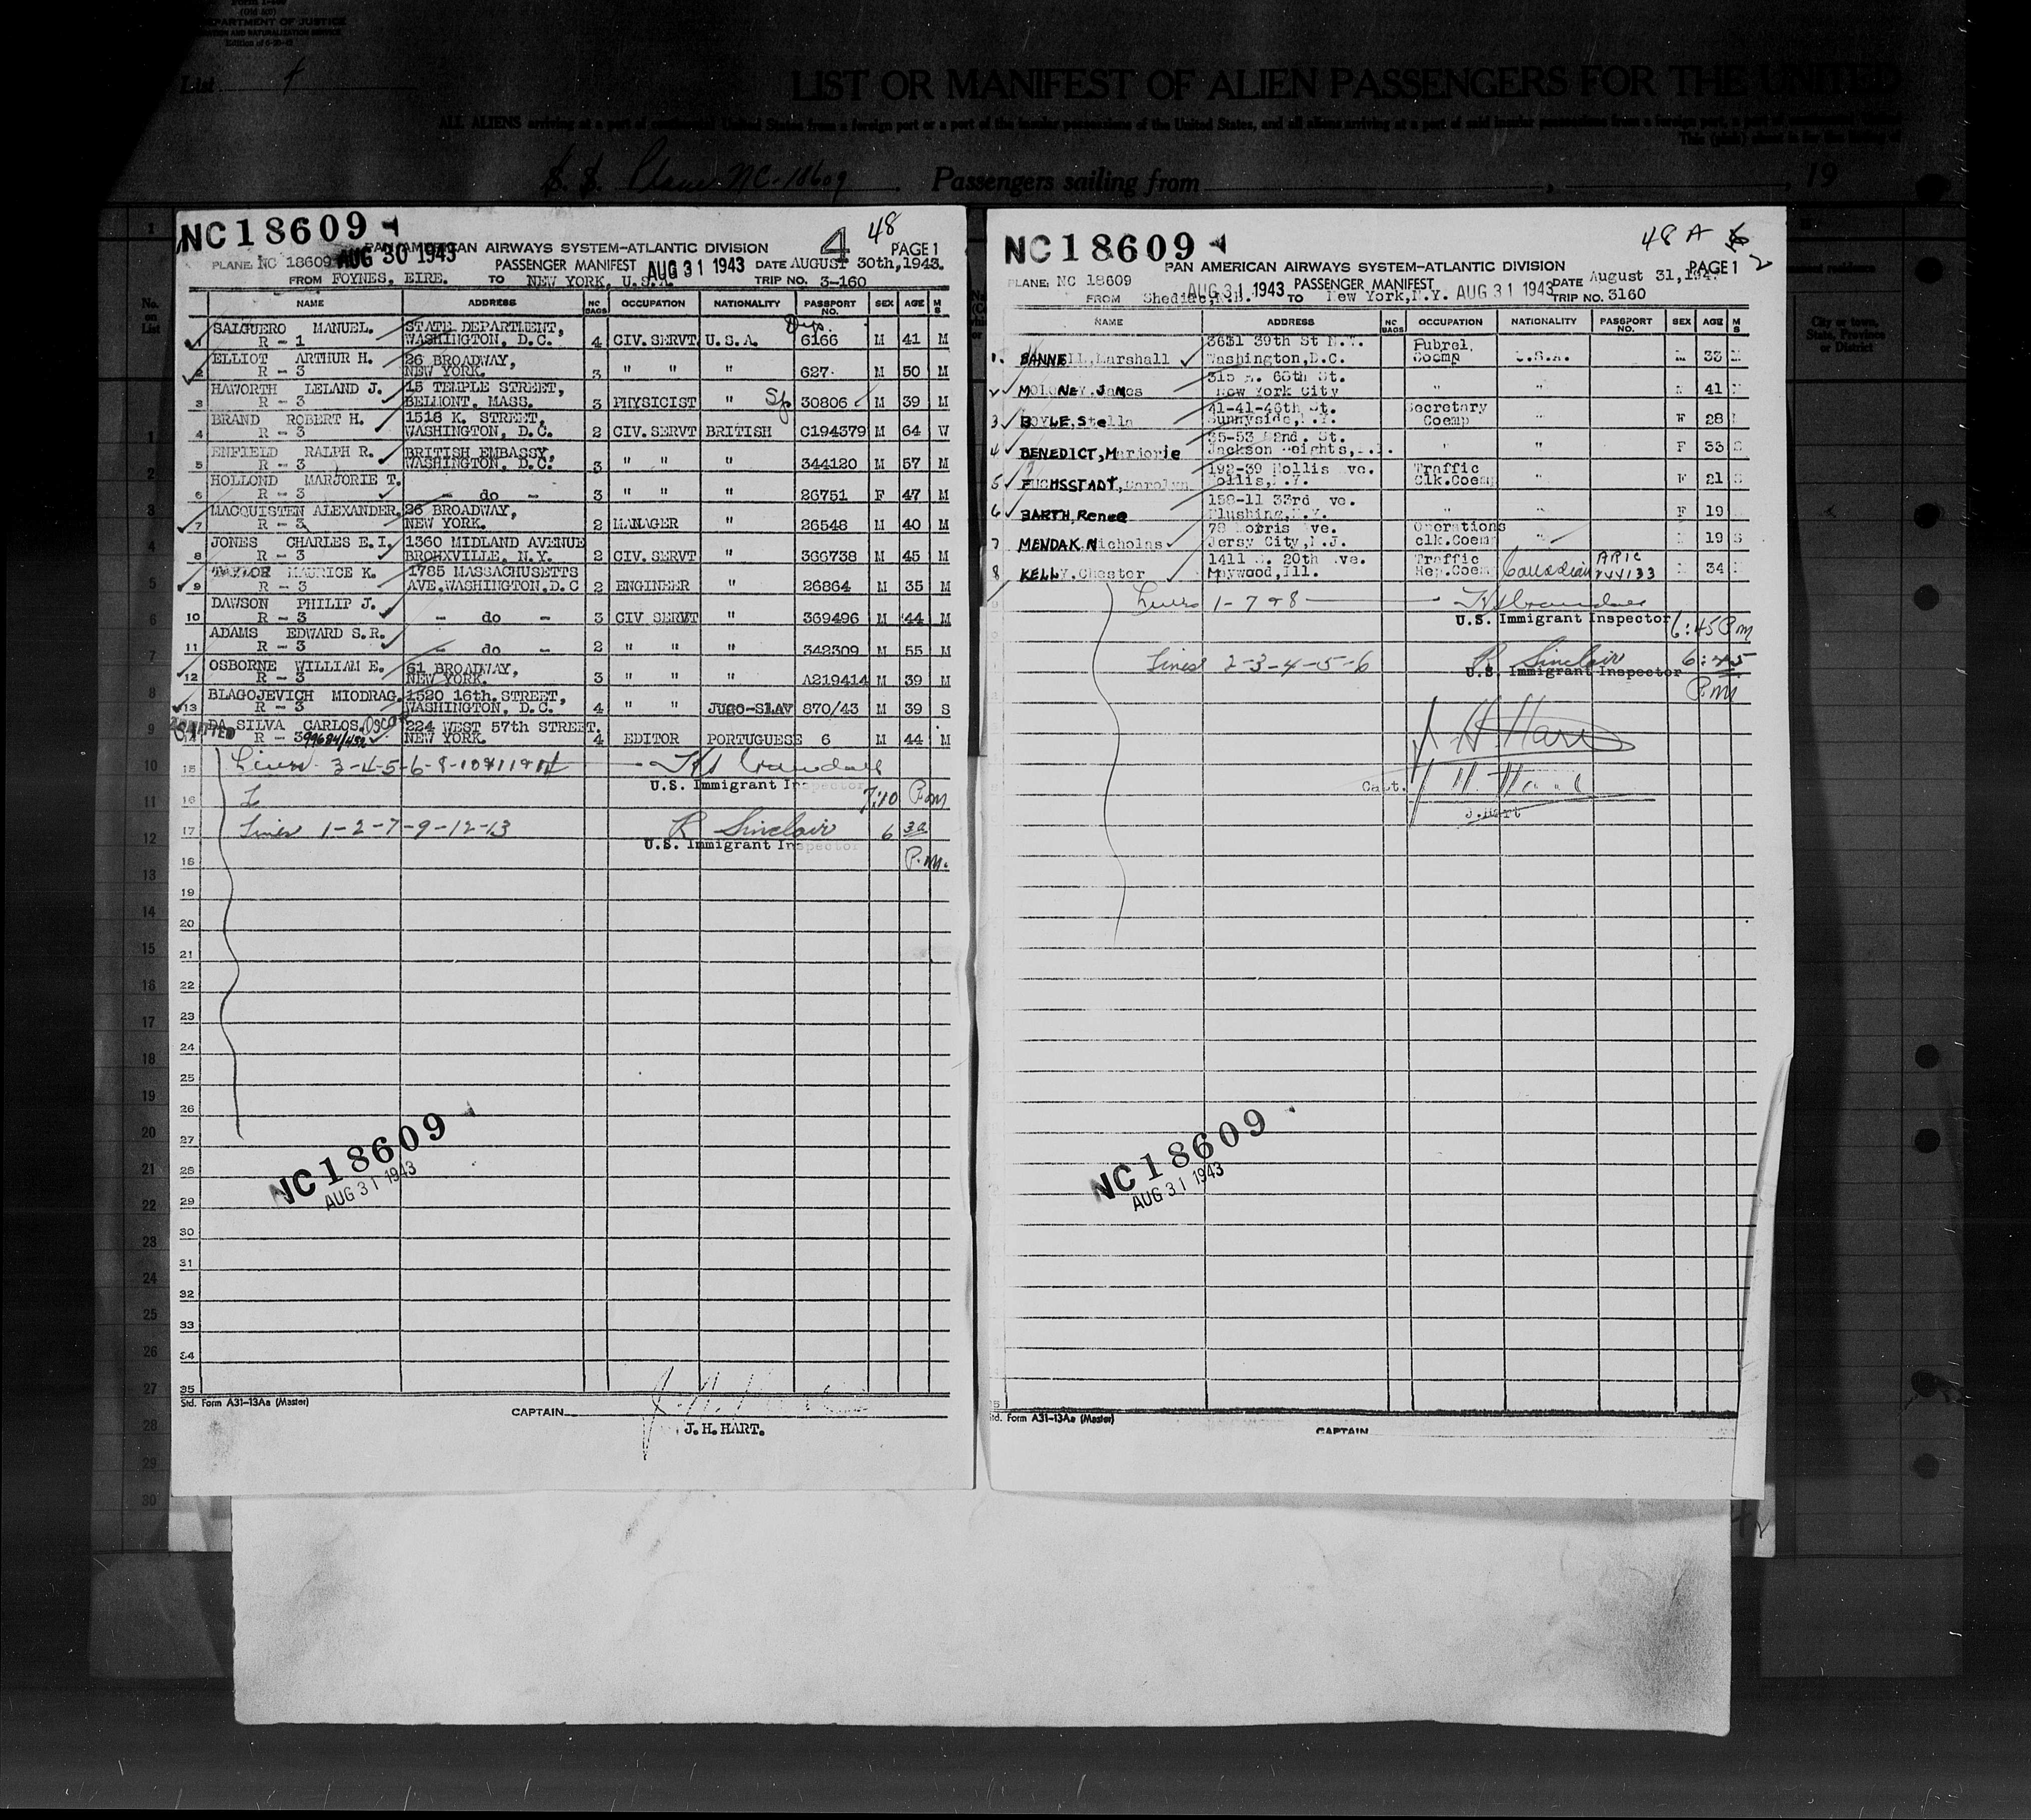 DEPARTMENT OF JUSTICE
List
LIST OR MANIFEST OF ALIEN PASSENGERS FOR THE UNITED
ALL ALIENS arriving at a port of continental United States from a foreign port or a port of the insular possessions of the United States, and all aliens arriving at a port of said insular possessions from a foreign port, a port of continental United
S. S. Plane NC-18609 Passengers sailing from , 19
NC18609 4 48
PAN AMERICAN AIRWAYS SYSTEM-ATLANTIC DIVISION PAGE 1
PLANE NC 18609 AUG 30 1943 PASSENGER MANIFEST AUG 31 1943 DATE AUGUST 30th, 1943.
FROM FOYNES, EIRE. TO NEW YORK, U.S.A. TRIP NO. 3-160
NAME ADDRESS NO BAGS OCCUPATION NATIONALITY PASSPORT NO. SEX AGE M S
SALGUERO MANUEL. STATE DEPARTMENT, Dip.
1 R - 1 WASHINGTON, D.C. 4 CIV. SERVT U.S.A. 6166 M 41 M
ELLIOT ARTHUR H. 26 BROADWAY,
2 R - 3 NEW YORK. 3 " " " 627 M 50 M
HAWORTH LELAND J. 15 TEMPLE STREET,
3 R - 3 BELMONT, MASS. 3 PHYSICIST " Sp 30806 M 39 M
BRAND ROBERT H. 1518 K. STREET,
4 R - 3 WASHINGTON, D.C. 2 CIV. SERVT BRITISH C194379 M 64 W
ENFIELD RALPH R. BRITISH EMBASSY,
5 R - 3 WASHINGTON, D.C. 3 " " " 344120 M 57 M
HOLLOND MARJORIE T.
6 R - 3 - do - 3 " " " 26751 F 47 M
MACQUISTEN ALEXANDER. 26 BROADWAY,
7 R - 3 NEW YORK. 2 MANAGER " 26548 M 40 M
JONES CHARLES E.I. 1360 MIDLAND AVENUE
8 R - 3 BRONXVILLE, N.Y. 2 CIV. SERVT " 366738 M 45 M
TAYLOR MAURICE K. 1785 MASSACHUSETTS
9 R - 3 AVE.WASHINGTON,D.C 2 ENGINEER " 26864 M 35 M
DAWSON PHILIP J.
10 R - 3 - do - 3 CIV SERVT " 369496 M 44 M
ADAMS EDWARD S.R.
11 R - 3 - do - 2 " " " 342309 M 55 M
OSBORNE WILLIAM E. 61 BROADWAY,
12 R - 3 NEW YORK. 3 " " " A219414 M 39 M
BLAGOJEVICH MIODRAG. 1520 16th.STREET,
13 R - 3 WASHINGTON, D.C. 4 " " JUGO-SLAV 870/43 M 39 S
ADMITTED DA SILVA CARLOS. Oscar 224 WEST 57th STREET.
14 R - 3 99684/432 NEW YORK. 4 EDITOR PORTUGUESE 6 M 44 M
15 Lines 3-4-5-6-8-10&11&14
U.S. Immigrant Inspector
16 7:10 P.m
17 Lines 1-2-7-9-12-13 R Sinclair 6 30
U.S. Immigrant Inspector
18 P.m.
19
20
21
22
23
24
25
26
27
28
29
30
31
32
33
34
35
NC18609
AUG 31 1943
Std. Form A31-13Aa (Master)
CAPTAIN
J.H. HART.
NC18609 48 A
PAN AMERICAN AIRWAYS SYSTEM-ATLANTIC DIVISION PAGE 1 2
PLANE NC 18609 AUG 31 1943 PASSENGER MANIFEST AUG 31 1943 DATE August 31,194
FROM Shediac,N.B. TO New York,N.Y. TRIP NO. 3160
NAME ADDRESS NO BAGS OCCUPATION NATIONALITY PASSPORT NO. SEX AGE M S
3631 39th St N.W. Pubrel.
1. BANNELL,Marshall Washington,D.C. Coemp U.S.A. M 33 M
315 65th St.
2 MOLONEY,James New York City " " M 41
41-41-46th St. Secretary
3 BOYLE,Stella Sunnyside,N.Y. Coemp " F 28
35-53 82nd. St.
4 BENEDICT,Marjorie Jackson Heights, " " F 33 S
192-39 Hollis Ave. Traffic
5 FUCHSSTADT,Carolyn Hollis,N.Y. Clk.Coemp " F 21 S
159-11 33rd Ave.
6 BARTH,Renee Flushing,N.Y. F 19
78 Morris Ave. Operations
7 MENDAK,Nicholas Jersy City,N.J. clk.Coemp " M 19 S
1411 S. 20th Ave. Traffic ARIC
8 KELLY,Chester Maywood,Ill. Rep.Coemp Canadian M 34
Lines 1-7&8
U.S. Immigrant Inspector 6:45 Pm
Lines 2-3-4-5-6 R Sinclair 6:45
U.S. Immigrant Inspector
P.m
J H Hart
Capt. J H Hart
J.Hart
NC18609
AUG 31 1943
Std. Form A31-13Aa (Master)
CAPTAIN